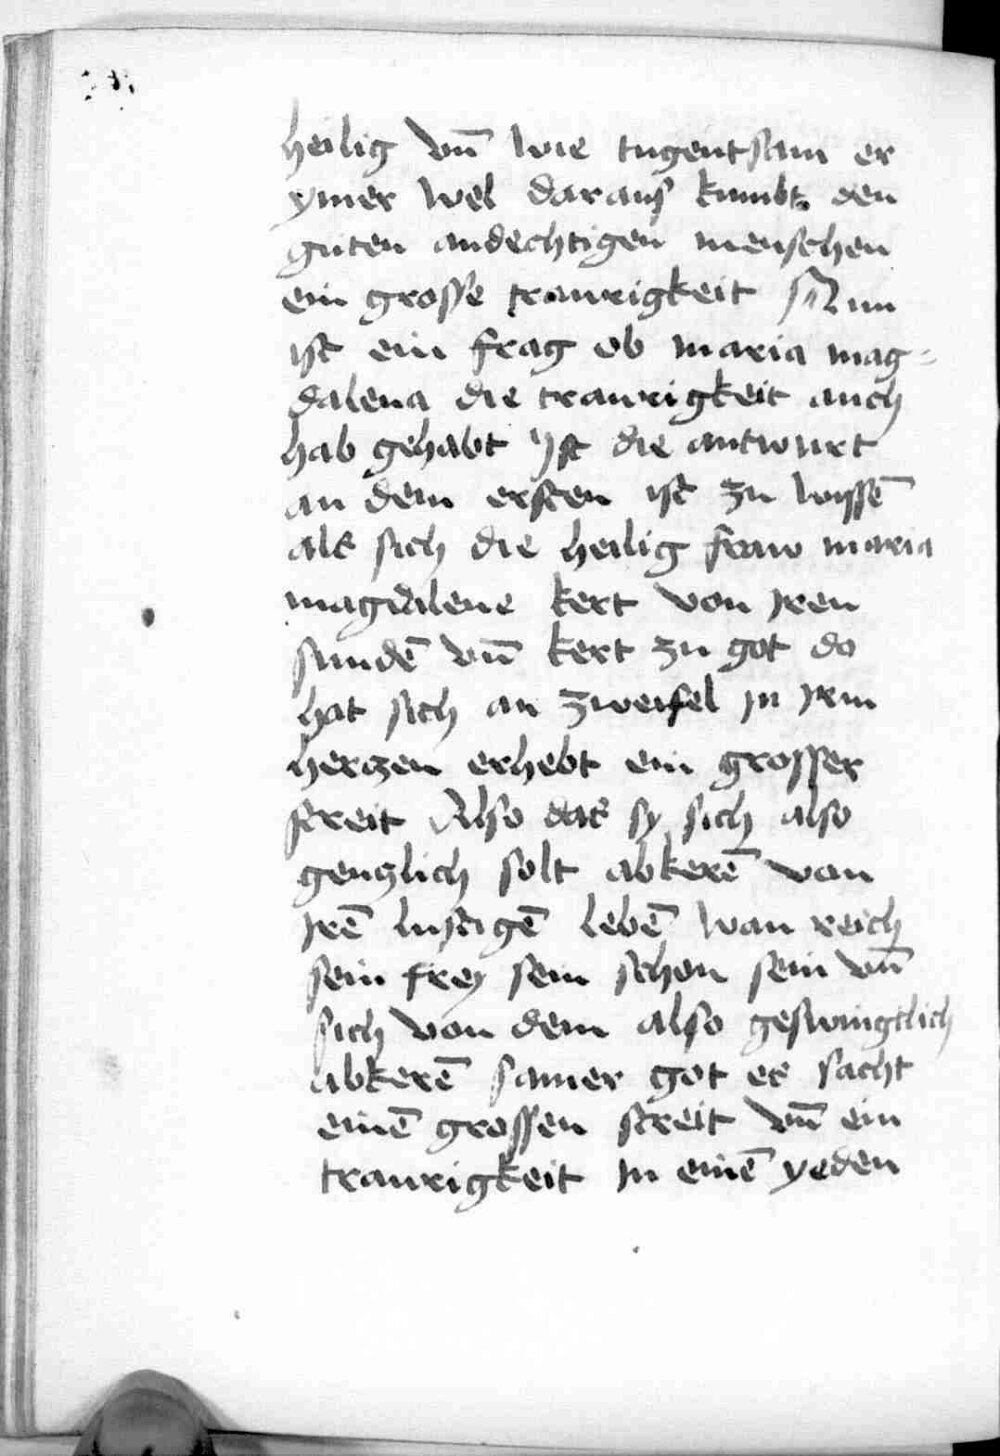 heilig vn̄ wie tugentsam er
ymer wel daraus kumbt den
guten andechtigen menschen
ein grosse trawrigkeit Nun
ist ein frag ob maria mag=
dalena die trawrigkeit auch
hab gehabt Ist die antwurt
an dem ersten ist zu wissē
als sich die heilig fraw maria
magdalene kert von iren
sundē vn̄ kert zu got do
hat sich an zweifel in irm
herczen erhebt ein grosser
streit Also das sy sich also
genczlich solt abkerē von
irē lustigē lebē wan reich
sein frey sein schon sein vn̄
sich von dem also geswingtlich
abkerē samer got es facht
einē grossen streit vn̄ ein
trawrigkeit in einē yeden